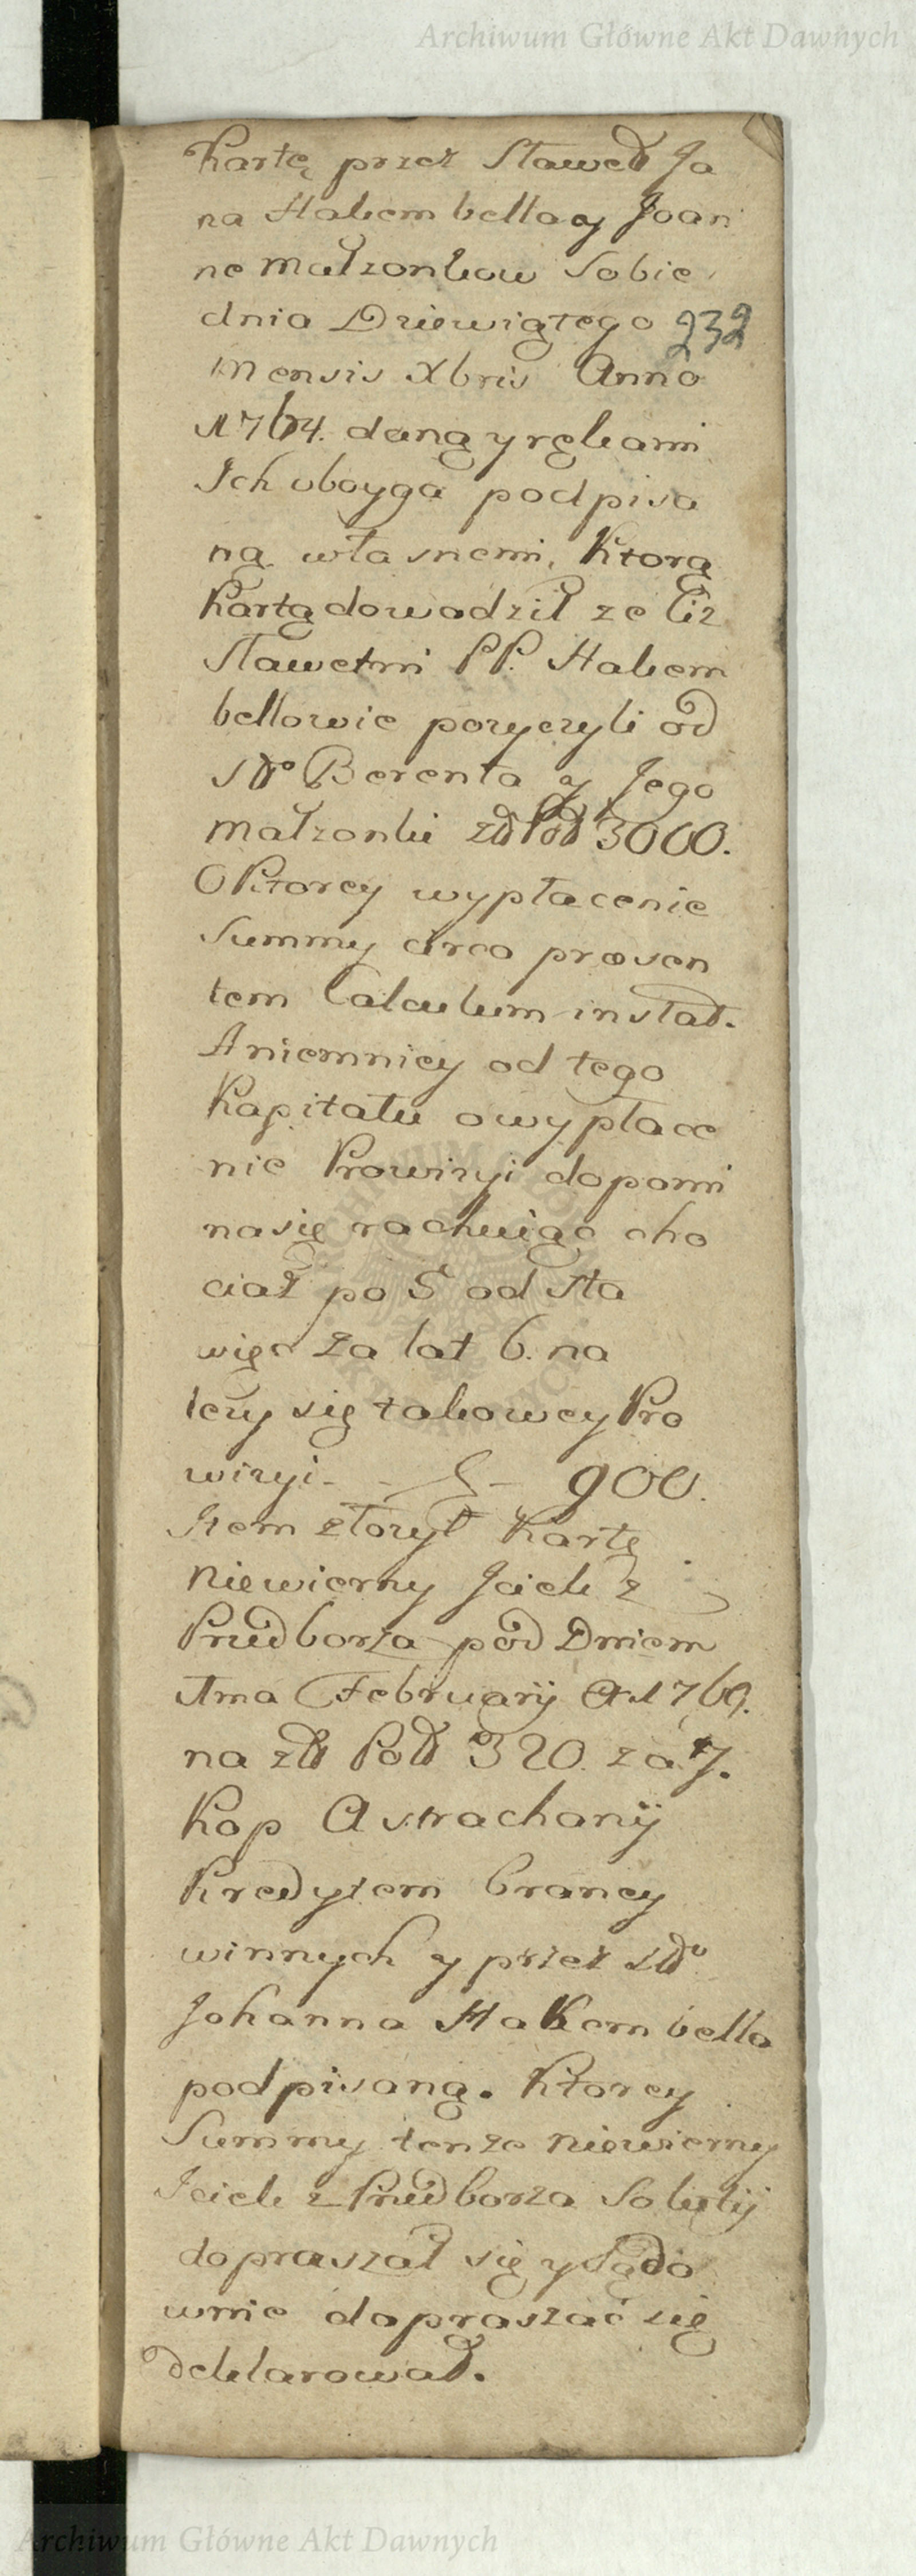 Archiwum Główne Akt Dawnych
Kartę przez Sławetd Ja
na Hakembella y Joan
nę Małzonkow Sobie
dnia Dziewiątego
232
Mensis Xbris Anno
1764. daną y rękami
Ich oboyga podpisa
ną własnemi, Ktorą
Kartą dowodził ze Ciz
Sławetni PP. Hakem
bellowie pozyczyli od
Sdo Berenta y Jego
Małzonki złł Poll 3000.
O Ktorey wypłacenie
Summy circa præsen
tem Calculum instat.
A niemniey od tego
Kapitału o wypłace
nie Prowizyi dopomi
na się rachuiąc cho
ciaż po 5 od sta
więc za lat 6. na
lezy się takowey Pro
wizyi - - - 900.
Item złozył Kartę
Niewierny Icick z
Przedborza pod Dniem
1ma February A. 1769.
na złł Poll 320. za 7.
Kop Astrachanij
Kredytem braney
winnych y przez Sdo
Johanna Hakembella
podpisaną. Ktorey
Summy tenze Niewierny
Icick z Przedborza Solutij
dopraszał się y Sądo
wnie dopraszać się
deklarował.
Archiwum Główne Akt Dawnych